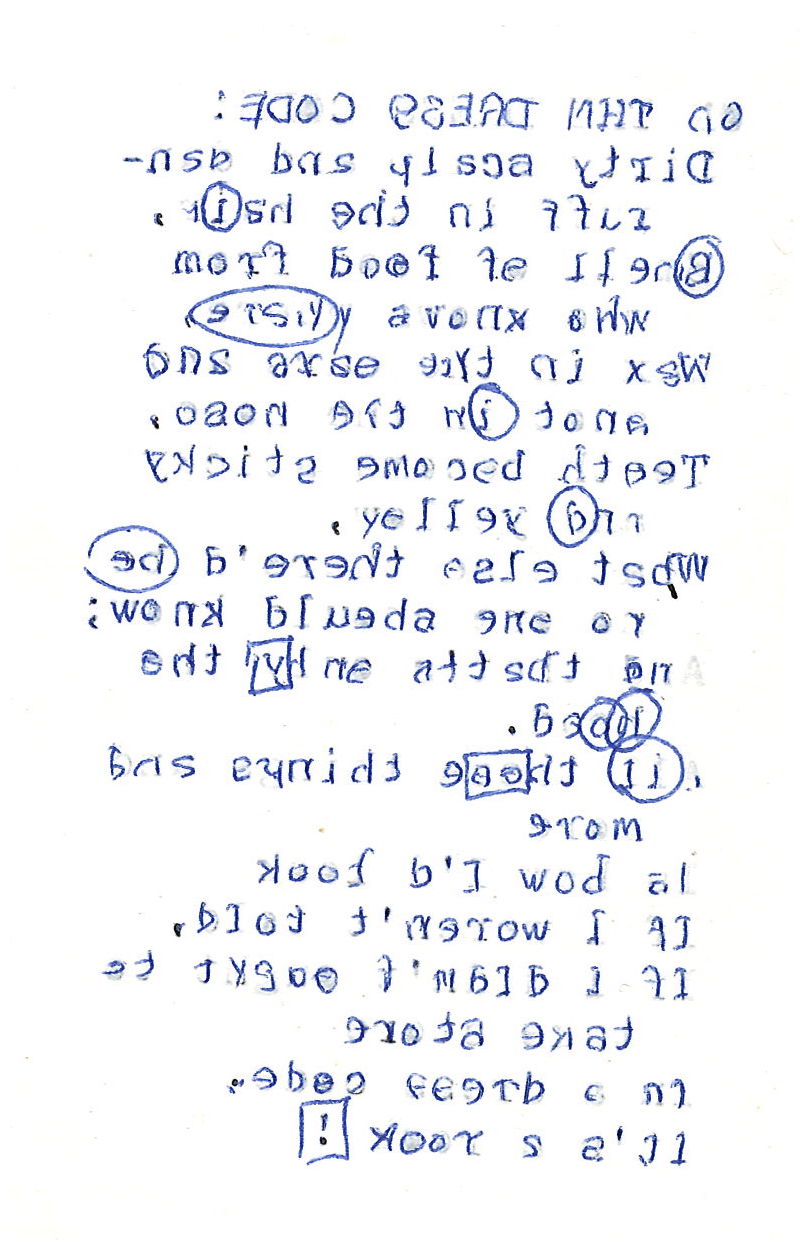 On THM DRESS CODE:
Dirty scalp and dan-
ruff in the hair.
Smell of food from
who knows where,
Wax in the ears and
snot in the nose.
Teeth become sticky
and yellow.
What else there'd be
no one should know;
And thatts only the
head.
All these things and
more
Is how I'd look
If I woren't told.
If I didn't
take store
in a dress code.
It's a rook!